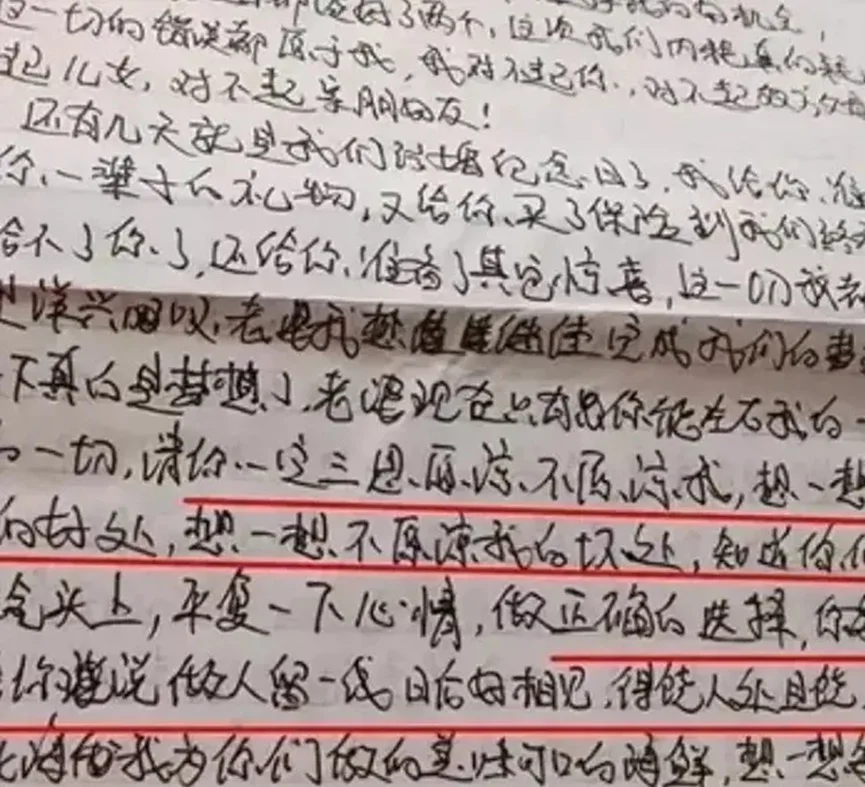 了两个,这次我们
这一切的错误都原于我,我对不起你,对不起
起儿女,对不起亲朋好友!
还有几天就是我们结婚纪念日了,我给你准
你一辈子的礼物,又给你买了保险到我们
给不了你了,还给你准备了其它惊喜,这一切我
老婆我想 继续 完成我们的
下真的是梦想了,老婆现在只有你能左右我的一
一切,请你一定三思,原谅不原谅我,想一想
的好处,想一想不原谅我的坏处,知道你
念头上,平复一下心情,做正确的选择,你
你 说做人留一线日后好相见,得饶人处且饶
我为你们做的美味可口的海鲜,想一想